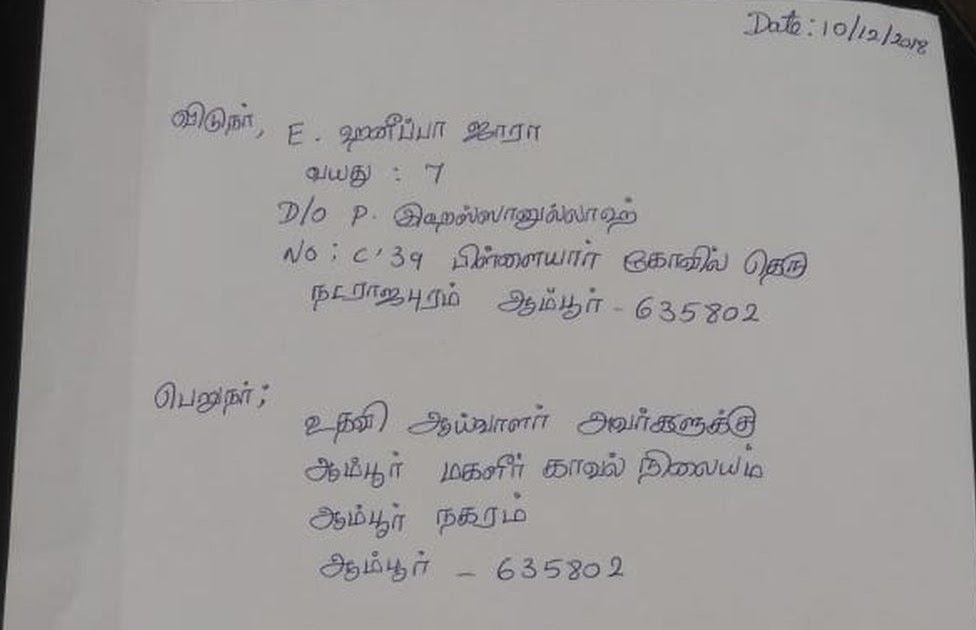 Date: 10/12/2018
விடுநர், E. ஹனீப்பா ஜாரா
வயது : 7
D/O P. இஹஸ்ஸானுல்லாஹ்
No: C'39 பிள்ளையார் கோவில் தெரு
நடராஜபுரம் ஆம்பூர் - 635802
பெறுநர்;
உதவி ஆய்வாளர் அவர்களுக்கு
ஆம்பூர் மகளிர் காவல் நிலையம்
ஆம்பூர் நகரம்
ஆம்பூர் - 635802